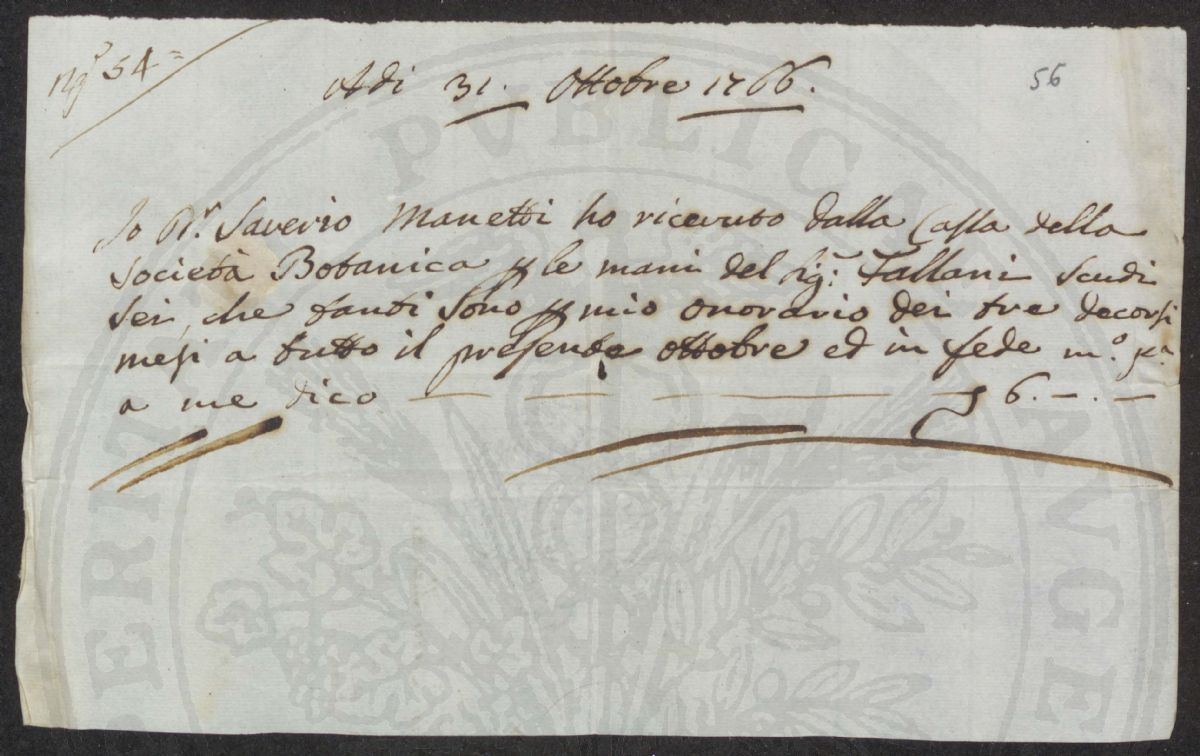 54
Adi 31. Ottobre 1766.
56
Io Dr. Saverio Manetti ho ricevuto dalla Cassa della
Società Botanica le mani del Sig.r Fallani scudi
sei, che tanti sono mio onorario dei tre decorsi
mesi a tutto il presente ottobre ed in fede m.o p.a
a me dico — — — — 6. —. —
PVBLICAE
AVGE